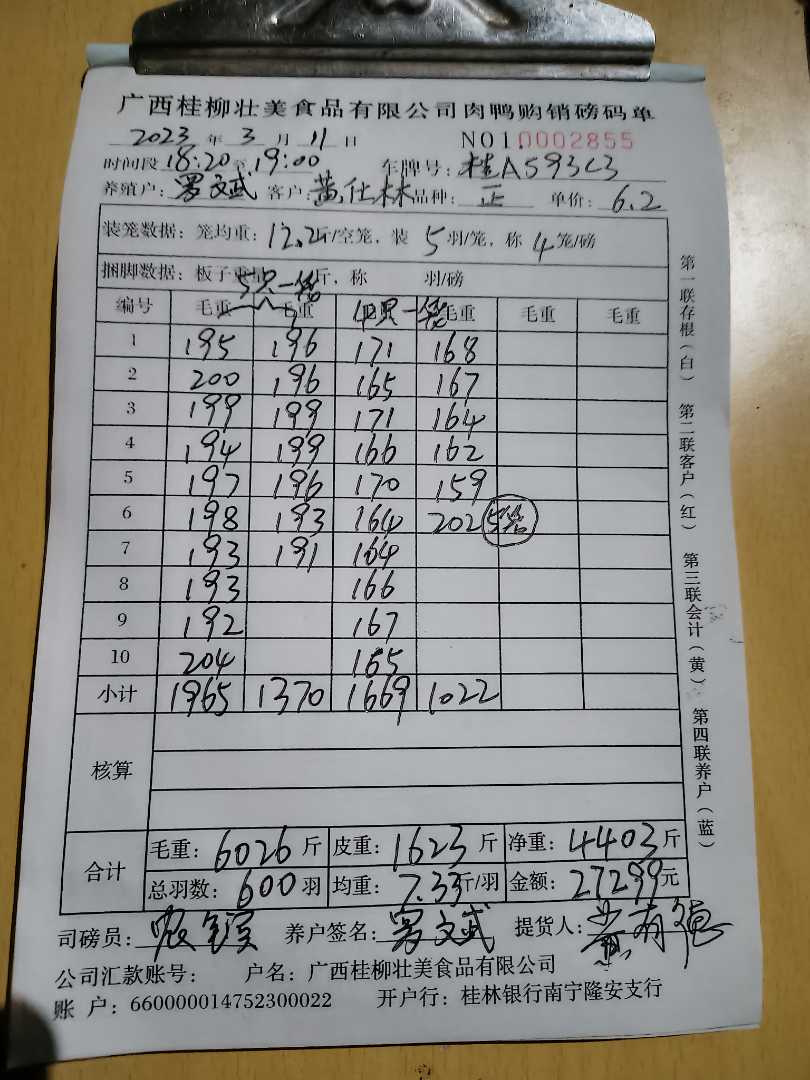 广西桂柳壮美食品有限公司肉鸭购销磅码单
2023 年 3 月 11 日 NO10002855
时间段 18:20 至 19:00 车牌号: 桂A593C3
养殖户: 罗文武 客户: 黄仕林 品种: 正 单价: 6.2
装笼数据: 笼均重: 12.2 斤/空笼, 装 5 羽/笼, 称 4 笼/磅
捆脚数据: 板子重 斤, 称 羽/磅
5只一笼 4只一笼
编号 毛重 毛重 毛重 毛重 毛重
1 195 196 171 168
2 200 196 165 167
3 199 199 171 164
4 194 199 166 162
5 197 196 170 159
6 198 193 164 202 5笼
7 193 191 164
8 193 166
9 192 167
10 204 165
小计 1965 1370 1669 1022
核算
合计 毛重: 6026 斤 皮重: 1623 斤 净重: 4403 斤
总羽数: 600 羽 均重: 7.33 斤/羽 金额: 27299 元
司磅员: 养户签名: 罗文武 提货人:
公司汇款账号: 户名: 广西桂柳壮美食品有限公司
账 户: 660000014752300022 开户行: 桂林银行南宁隆安支行
第一联存根(白) 第二联客户(红) 第三联会计(黄) 第四联养户(蓝)